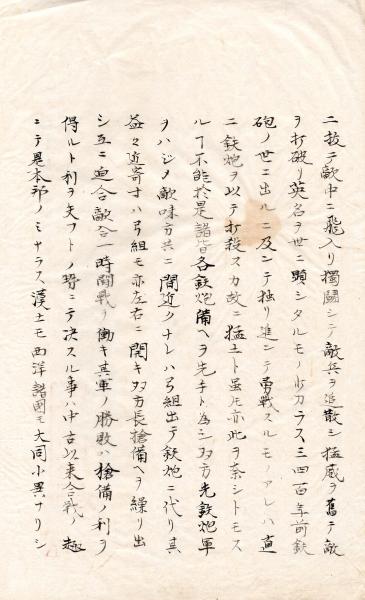 ニ抜テ敵中ニ飛入リ獨闘シテ敵兵ヲ追散シ猛威ヲ奮テ敵
ヲ打破リ英名ヲ世ニ顕シタルモノ少カラス三四百年前鉄
砲ノ世ニ出ルニ及ンテ独リ進ンテ勇戦スルモノアレハ直
ニ鉄炮ヲ以テ打殺スカ故ニ猛士ト虽モ亦此ヲ奈シトモス
ルヿ不能於是諸皆各鉄炮備ヘヲ先手ト為シ双方先鉄炮軍
ヲハジメ敵味方共ニ間近クナレハ弓組出テ鉄炮ニ代リ其
益々近寄すハ弓組モ亦左右ニ開キ双方長槍備ヘヲ繰リ出
シ互ニ迫合敵合一時闘戦リ働キ其軍ノ勝敗ハ槍備ノ利ヲ
得ルト利ヲ失フトノ勢ニテ决スル事ハ中古以来合戦ノ趣
ニテ是本邦ノミナラス漢土モ西洋諸國モ大同小異ナリシ